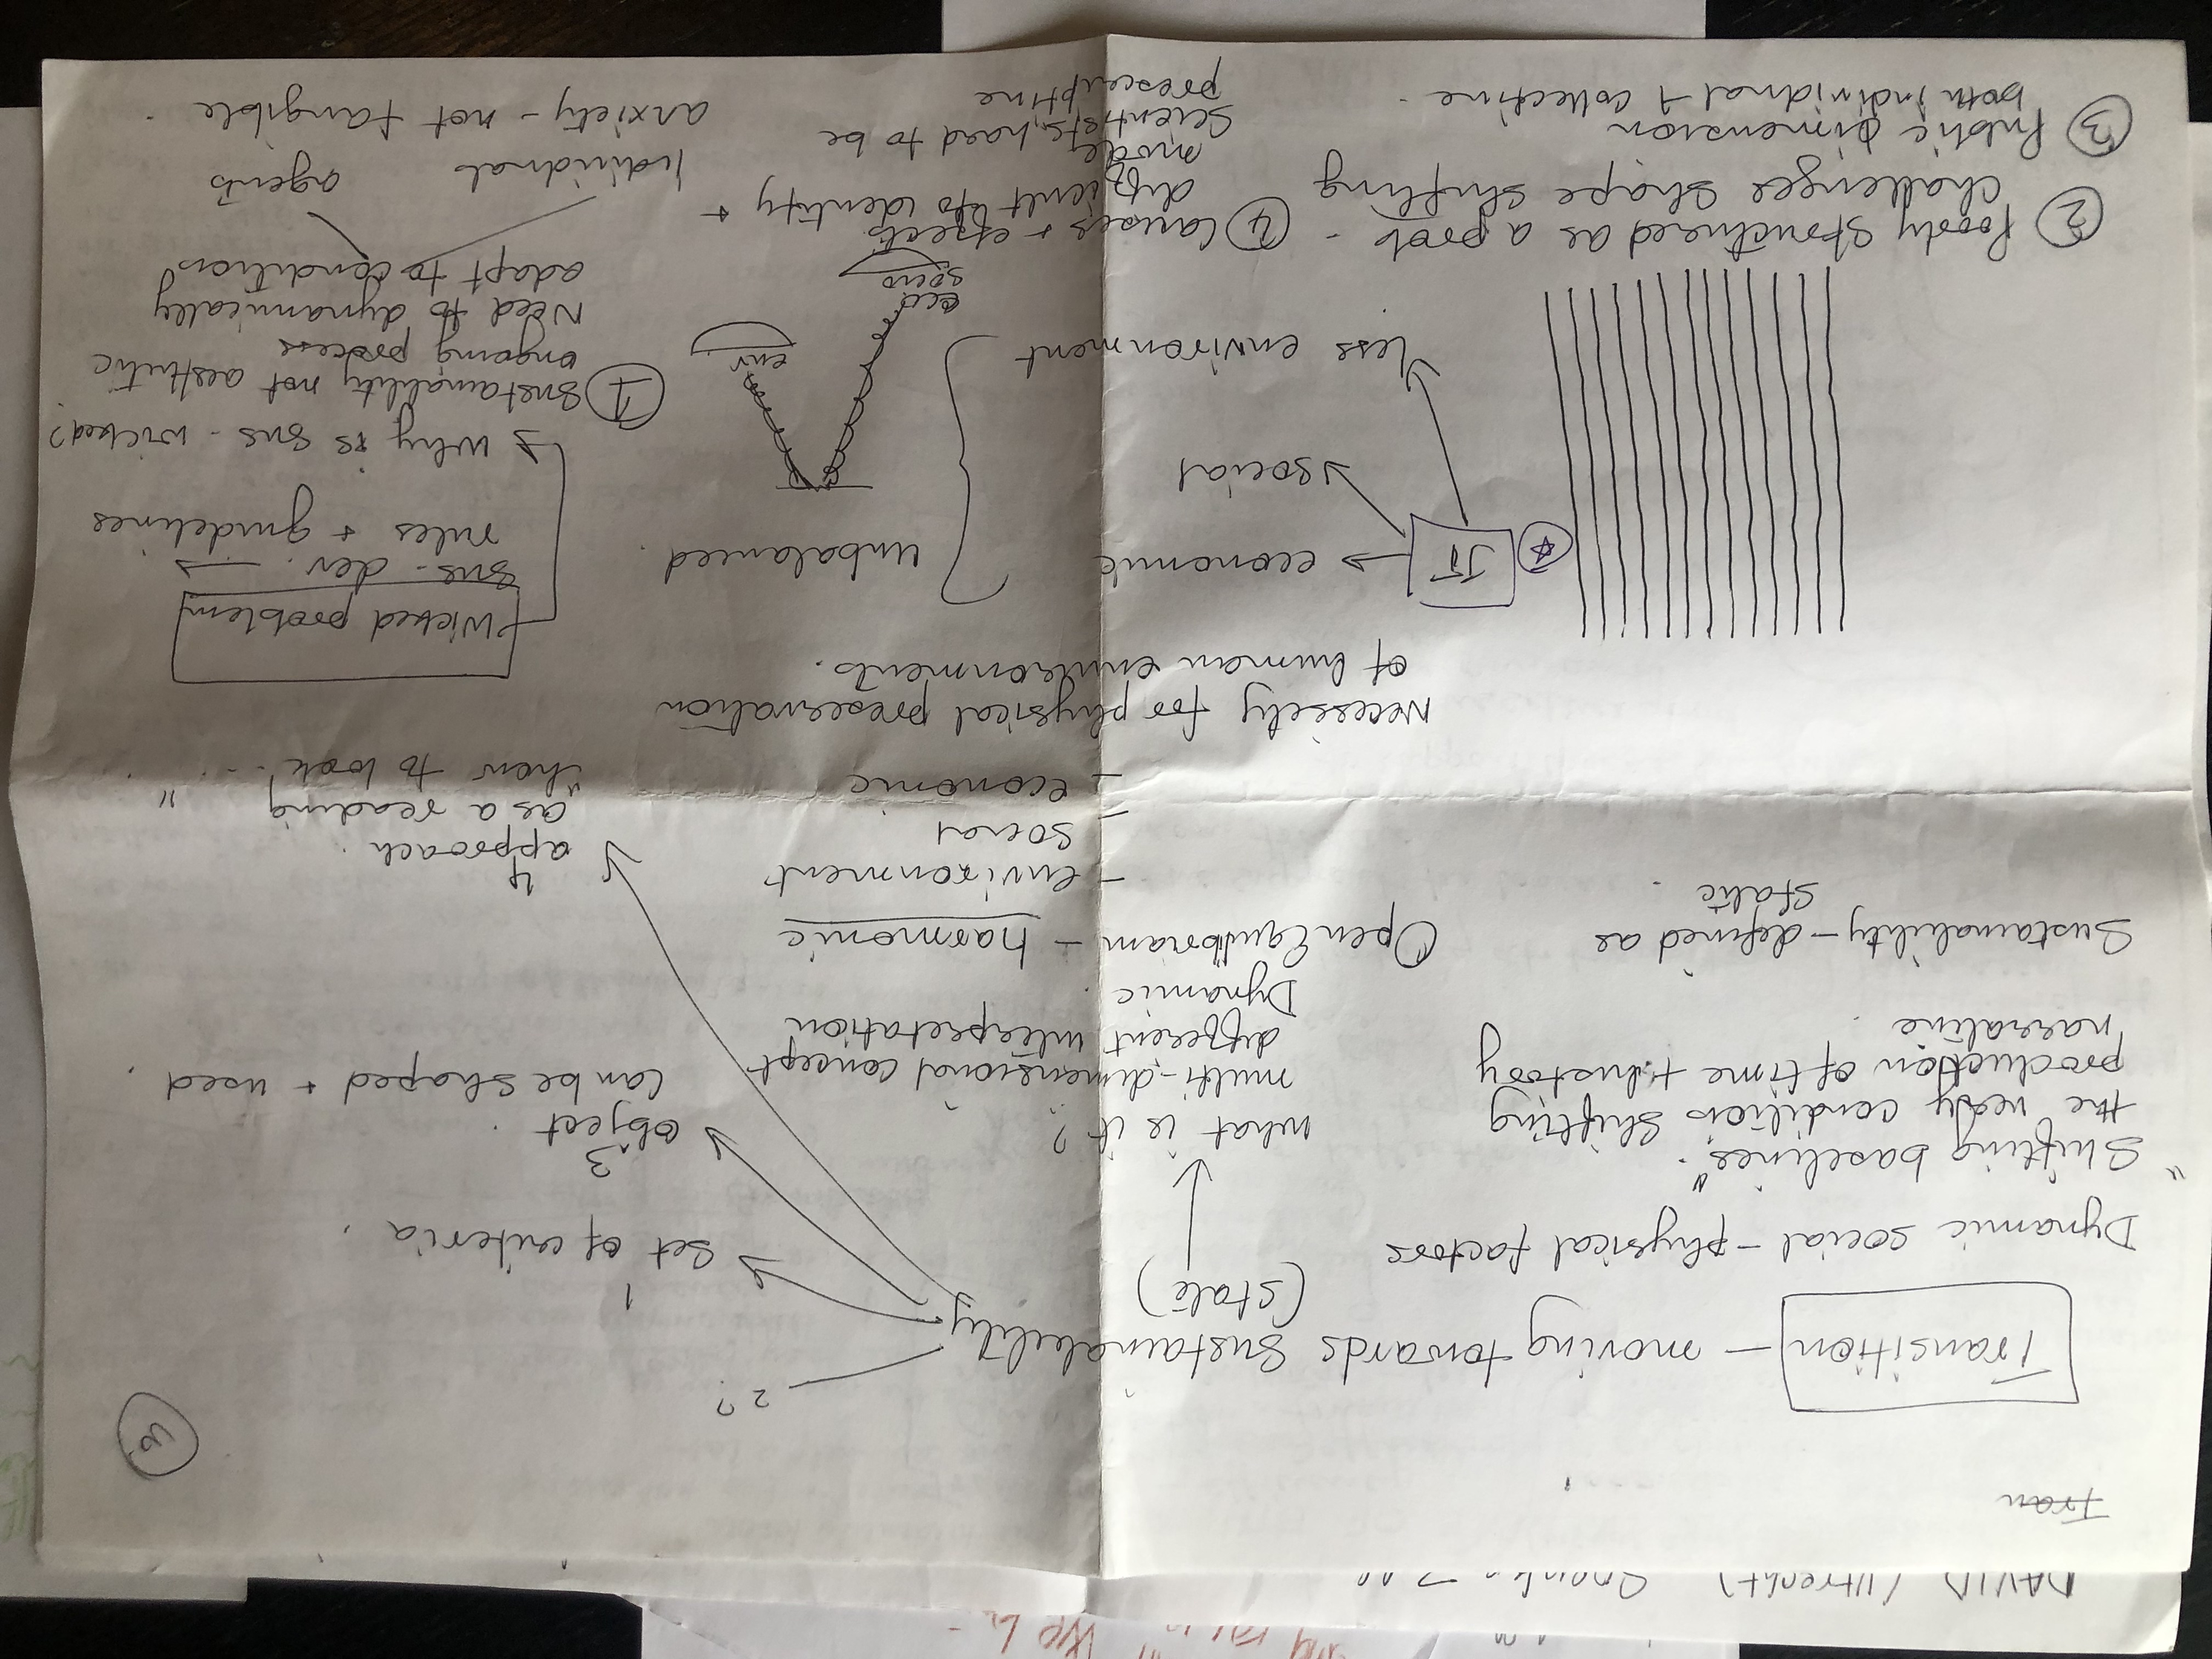 DAVID (Utrecht)
Tran
3
Transition — moving towards Sustainability
(State)
Dynamic social – physical factors
"Shifting baselines".
the very conditions shifting
production of time + history
narrative.
Sustainability – defined as
static
what is it?
multi-dimensional concept
different interpretation
Dynamic
Open Equilibriam – harmonic
– environment
– social
– economic
2?
1
→ Set of criteria.
3
object
can be shaped + used
4
approach.
as a reading
"how to look.. "
Necessity for physical preservation
of human environments.
JT → economic
→ social
→ less environment
unbalanced
env.
eco
socio
Wicked problem
sus. dev. →
rules + guidelines
→ Why is sus - wicked?
① Sustainability not aesthetic
ongoing process
Need to dynamically
adapt to conditions
Individual
agents
anxiety – not tangible
② Poorly structured as a prob -
challenges shape shifting
③ Public Dimension
both individual + collective
④ Causes + effects
difficult to identify +
model
Scientists, hard to be
prescriptive